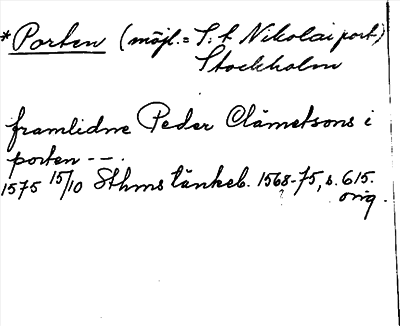 *Porten (möjl.= S:t Nikolai port)
Stockholm
framlidne Peder Clämetsons i
porten --.
1575 15/10 Sthms tänkeb. 1568-75, s. 615.
?
orig.